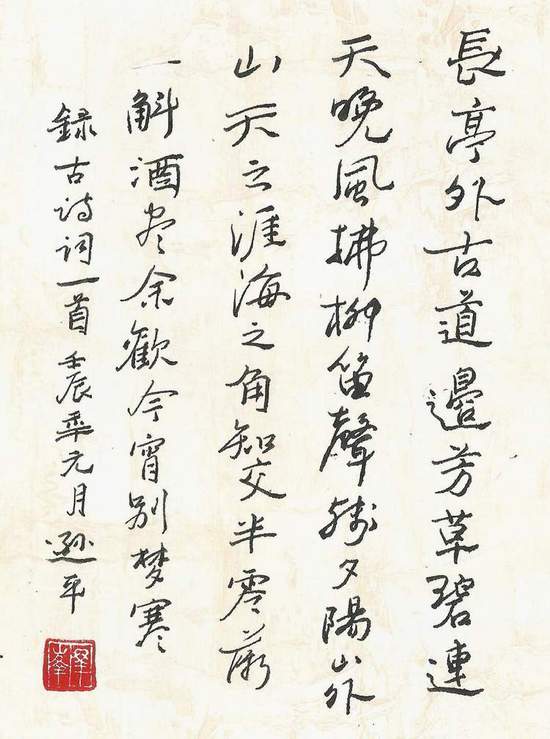 長亭外古道邊芳草碧連
天晚風拂柳笛聲残夕陽山外
山天之涯海之角知交半零落
一斛酒尽余歡今宵别梦寒
録古诗词一首壬辰年元月遜平